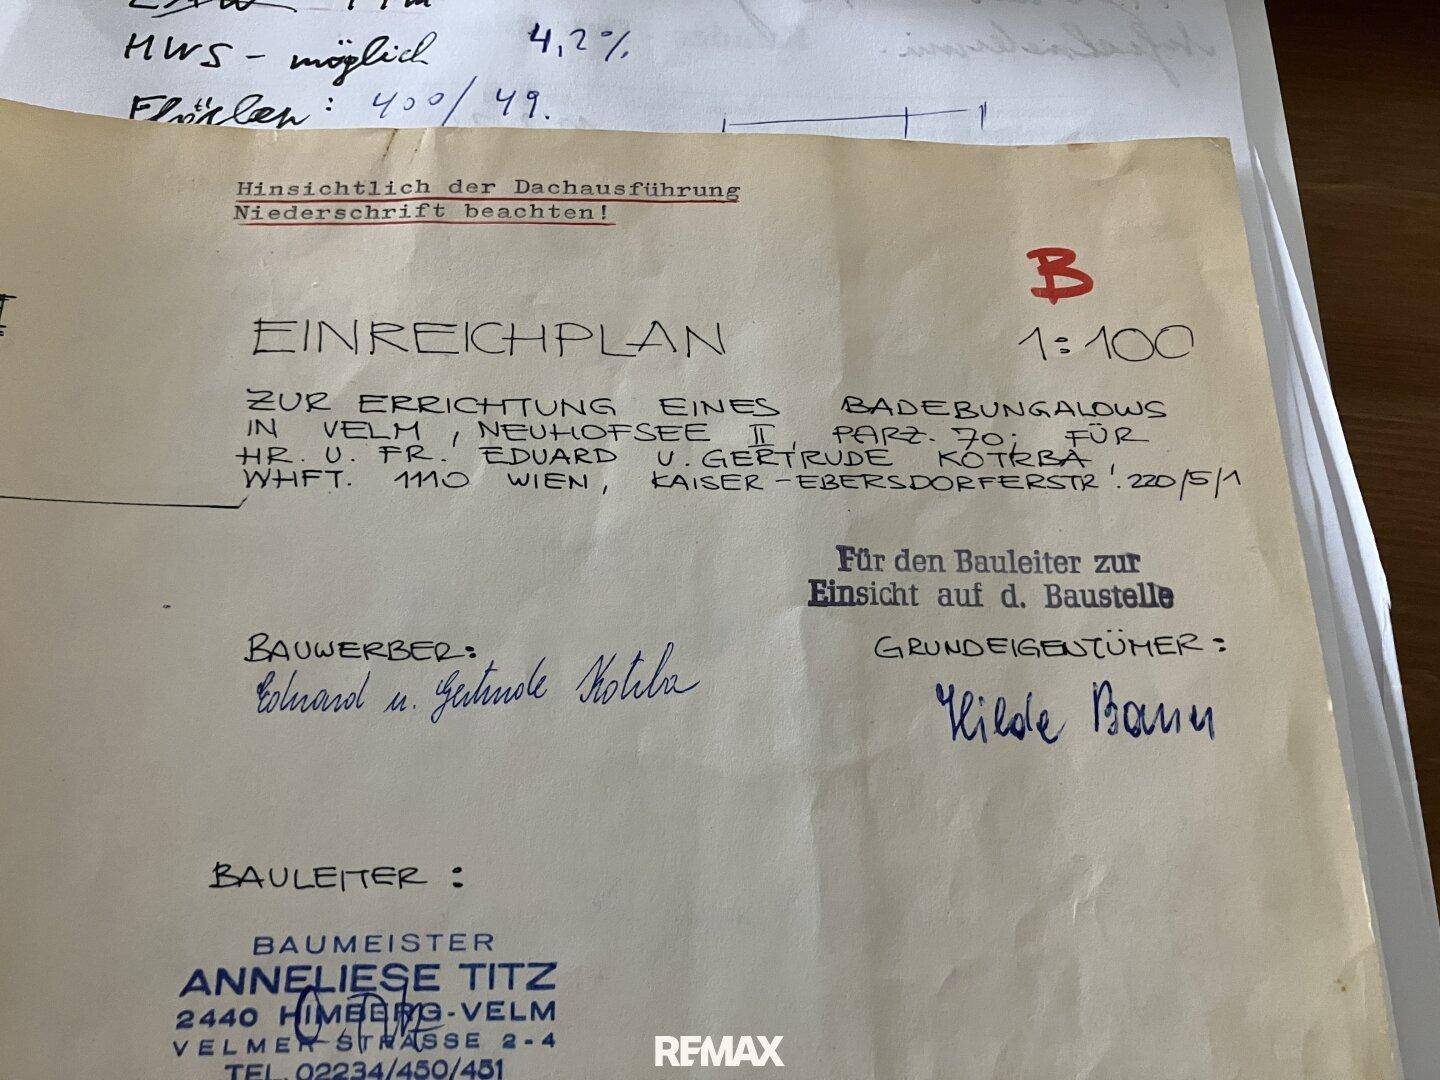 HWS - möglich 4,2%
Flächen: 400/49.
Hinsichtlich der Dachausführung
Niederschrift beachten!
B
EINREICHPLAN 1:100
ZUR ERRICHTUNG EINES BADEBUNGALOWS
IN VELM, NEUHOFSEE II, PARZ. 70; FÜR
HR. U. FR. EDUARD U. GERTRUDE KOTRBA,
WHFT. 1110 WIEN, KAISER-EBERSDORFERSTR. 220/5/1
Für den Bauleiter zur
Einsicht auf d. Baustelle
BAUWERBER: GRUNDEIGENTÜMER:
Eduard u. Gertrude Kotrba
Hilde
BAULEITER:
BAUMEISTER
ANNELIESE TITZ
2440 HIMBERG-VELM
VELMER STRASSE 2-4
TEL. 02234/450/451
REMAX